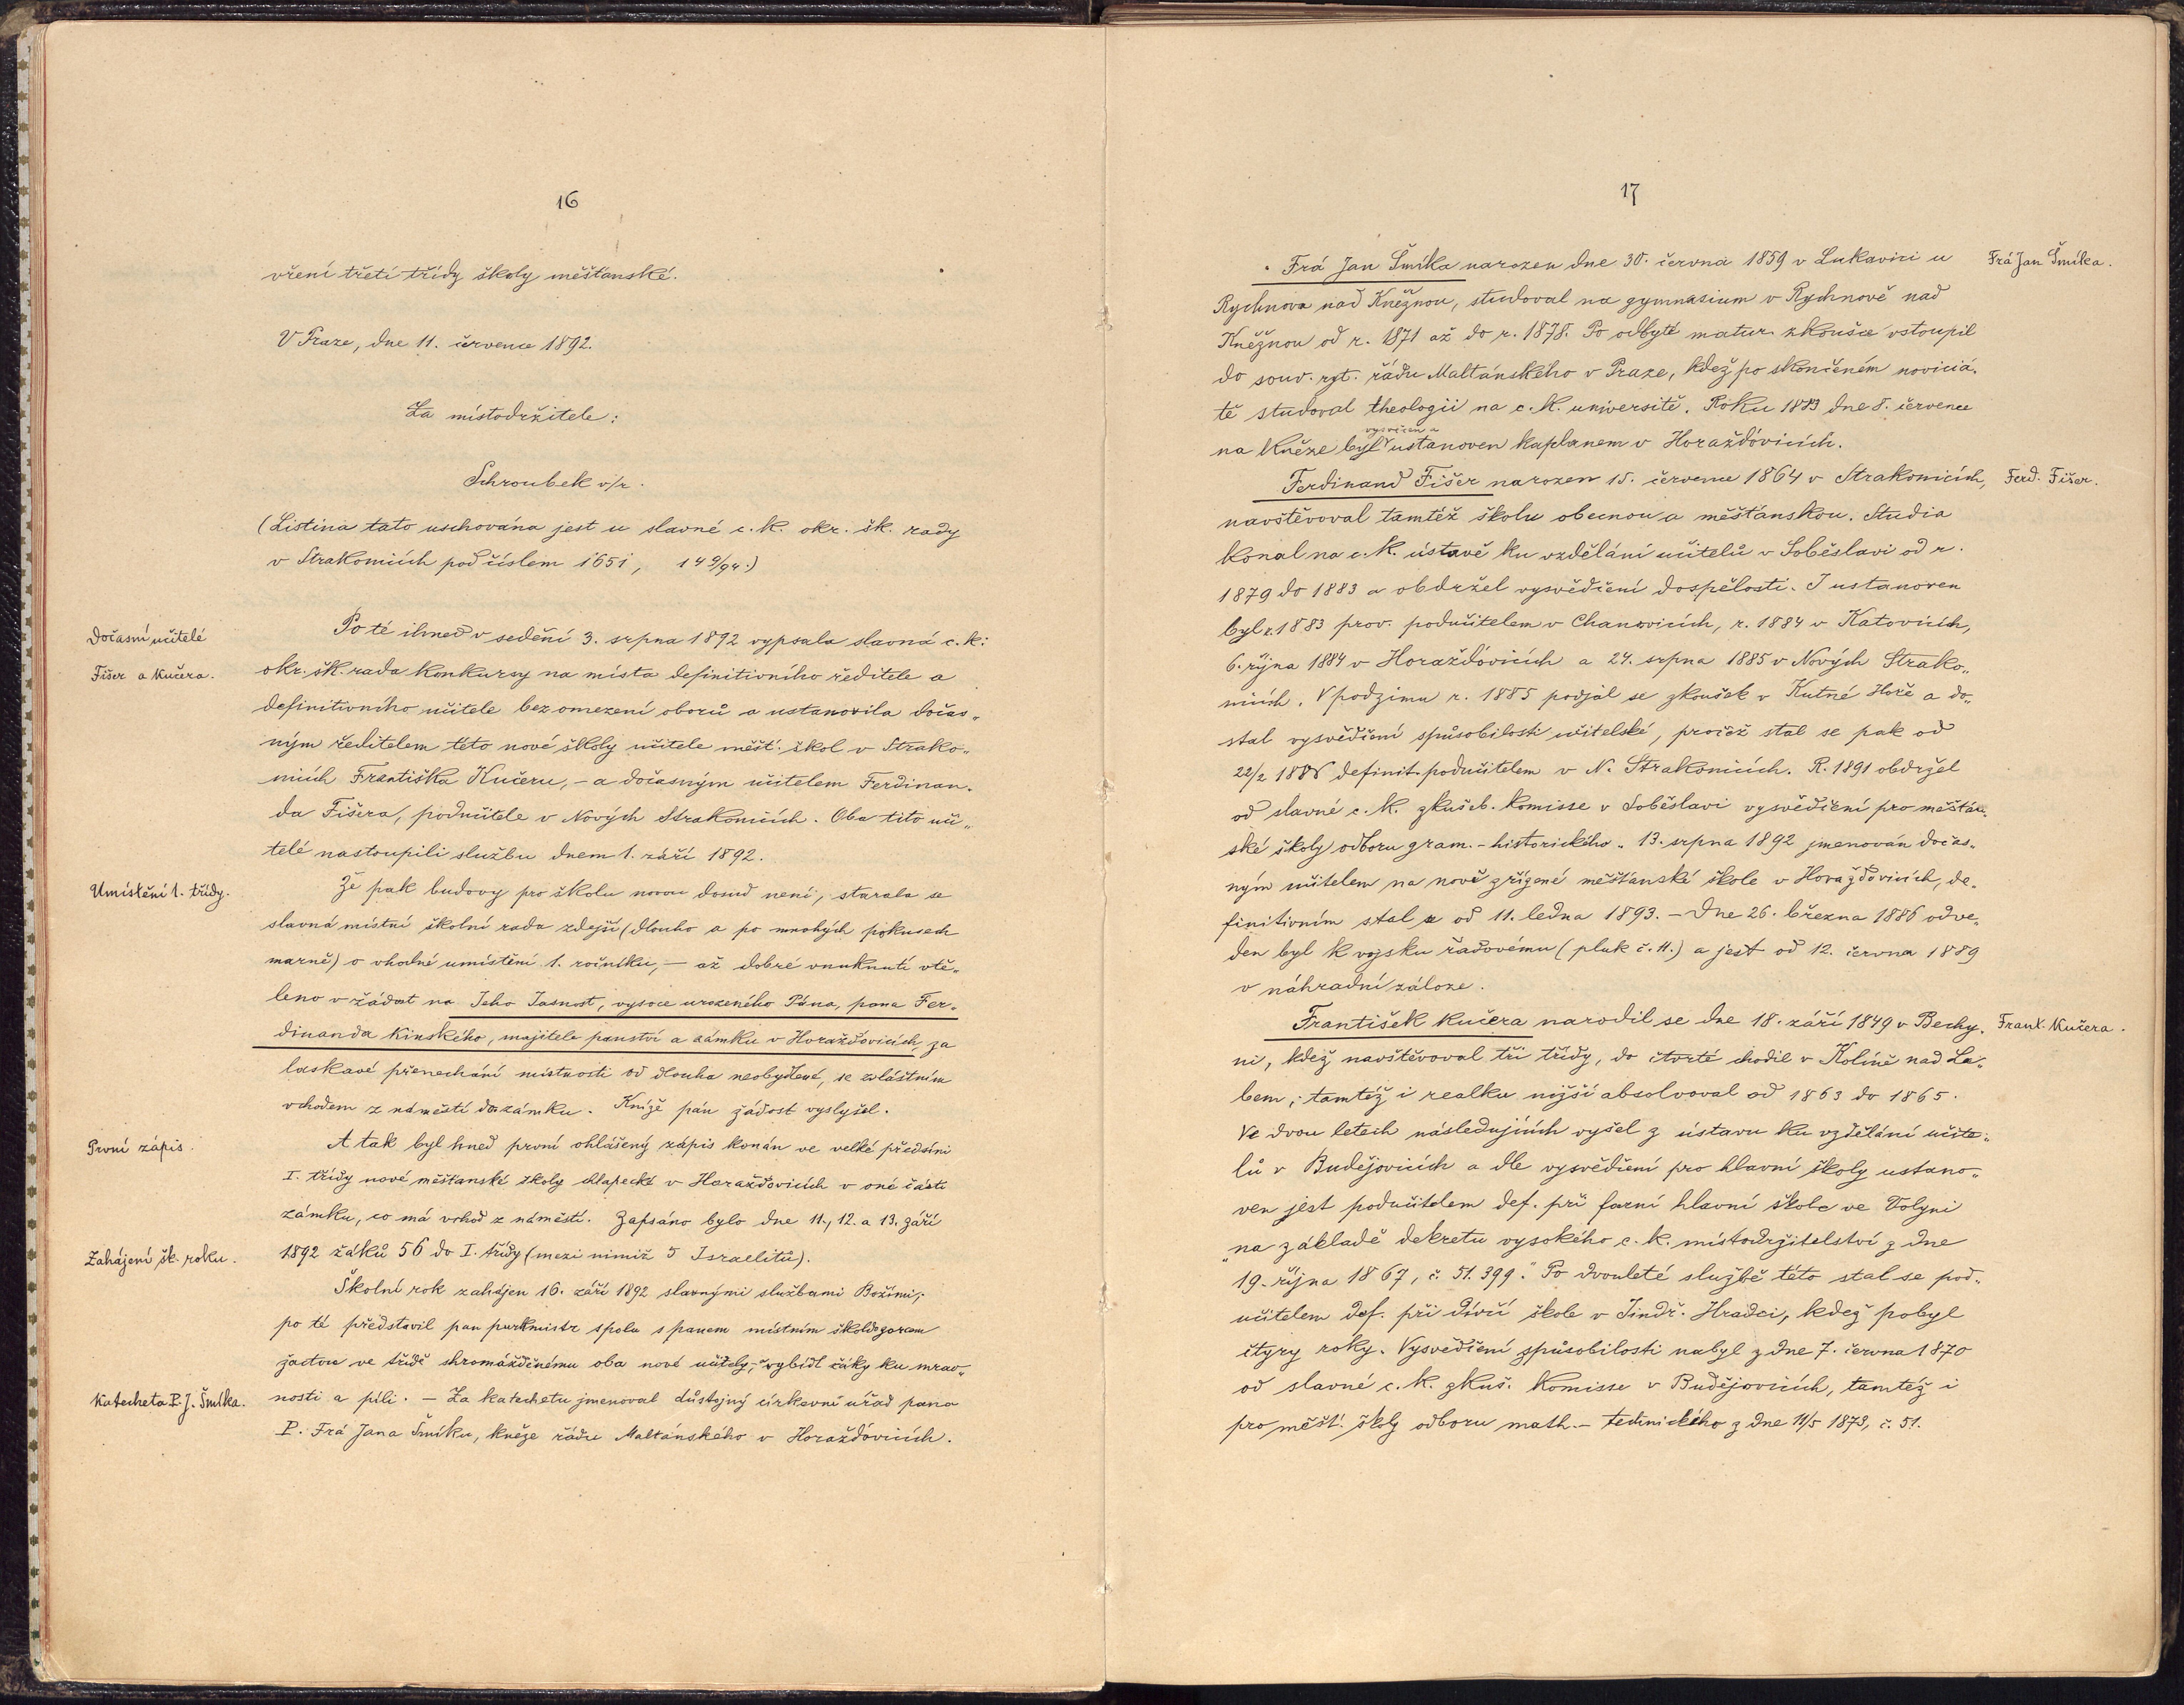 16
vření třetí třídy školy měšťanské.
V Praze, dne 11. července 1892.
Za místodržitele:
Schroubek v/r.
(Listina tato uschována jest u slavné c. k. okr. šk. rady
v Strakonicích pod číslem 1651, 149/94.)
Dočasní učitelé
Fišer a Kučera.
Po té ihned v sedění 3. srpna 1892 vypsala slavná c. k:
okr. šk. rada konkursy na místa definitivního ředitele a
definitivního učitele bez omezení oborů a ustanovila dočas„
ným ředitelem této nové školy učitele měšť. škol v Strako„
nicích Františka Kučeru, – a dočasným učitelem Ferdinan„
da Fišera, podučitele v Nových Strakonicích. Oba tito uči„
telé nastoupili službu dnem 1. září 1892.
Umístění 1. třídy.
Že pak budovy pro školu novou dosud není, starala se
slavná místní školní rada zdejší (dlouho a po mnohých pokusech
marně) o vhodné umístění 1. ročníku, — až dobré vnuknutí vtě„
leno v žádost na Jeho Jasnost, vysoce urozeného Pána, pana Fer„
dinanda Kinského, majitele panství a zámku v Horažďovicích, za
laskavé přenechání místnosti od dlouha neobydlené, se zvláštním
vchodem z náměstí do zámku. Kníže pán žádost vyslyšel.
První zápis.
A tak byl hned první ohlášený zápis konán ve velké předsíni
I. třídy nové měšťanské školy chlapecké v Horažďovicích v oné části
zámku, co má vchod z náměstí. Zapsáno bylo dne 11., 12. a 13. září
1892 žáků 56 do I. třídy (mezi nimiž 5 Israelitů).
Zahájení šk. roku.
Školní rok zahájen 16. září 1892 slavnými službami Božími;
po té představil pan purkmistr spolu s panem místním školdozorcem
žactvu ve třídě shromážděnému oba nové učitely, a vybídl žáky ku mrav„
nosti a píli. — Za katechetu jmenoval důstojný církevní úřad pana
Katecheta P. J. Šmíka.
P. Frá Jana Šmíku, kněze řádu Maltánského v Horažďovicích.
17
Frá Jan Šmíka narozen dne 30. června 1859 v Lukavici u
Frá Jan Šmíka.
Rychnova nad Kněžnou, studoval na gymnasium v Rychnově nad
Kněžnou od r. 1871 až do r. 1878. Po odbyté matur. zkoušce vstoupil
do souv. ryt. řádu Maltánského v Praze, kdež po skončeném noviciá„
tě studoval theologii na c. k. universitě. Roku 1883 dne 8. července
vysvěcen a
na kněze byl ustanoven kaplanem v Horažďovicích.
Ferdinand Fišer narozen 15. července 1864 v Strakonicích,
Ferd. Fišer.
navštěvoval tamtéž školu obecnou a měšťanskou. Studia
konal na c. k. ústavě ku vzdělání učitelů v Soběslavi od r.
1879 do 1883 a obdržel vysvědčení dospělosti. I ustanoven
byl r. 1883 prov. podučitelem v Chanovicích, r. 1884 v Katovicích,
6. října 1884 v Horažďovicích a 24. srpna 1885 v Nových Strako„
nicích. V podzimu r. 1885 podjal se zkoušek v Kutné Hoře a do„
stal vysvědčení spůsobilosti učitelské, pročež stal se pak od
22/2 1886 definit. podučitelem v N. Strakonicích. R. 1891 obdržel
od slavné c. k. zkušeb. komisse v Soběslavi vysvědčení pro měšťan„
ské školy odboru gram.-historického. 13. srpna 1892 jmenován dočas„
ným učitelem na nově zřízené měšťanské škole v Horažďovicích, de„
finitivním stal se od 11. ledna 1893. — Dne 26. března 1886 odve„
den byl k vojsku řadovému (pluk č. 11.) a jest od 12. června 1889
v náhradní záloze.
František Kučera narodil se dne 18. září 1849 v Bechy„
Frant. Kučera.
ni, kdež navštěvoval tři třídy, do čtvrté chodil v Kolíně nad La„
bem; tamtéž i realku nižší absolvoval od 1863 do 1865.
Ve dvou letech následujících vyšel z ústavu ku vzdělání učite„
lů v Budějovicích a dle vysvědčení pro hlavní školy ustano„
ven jest podučitelem def. při farní hlavní škole ve Volyni
„na základě dekretu vysokého c. k. místodržitelství z dne
19. října 1867, č. 51.399." Po dvouleté službě této stal se pod„
učitelem def. při dívčí škole v Jindř. Hradci, kdež pobyl
čtyry roky. Vysvědčení způsobilosti nabyl z dne 7. června 1870
od slavné c. k. zkuš. komisse v Budějovicích, tamtéž i
pro měšť. škly odboru math.-technického z dne 11/5 1873, č. 51.